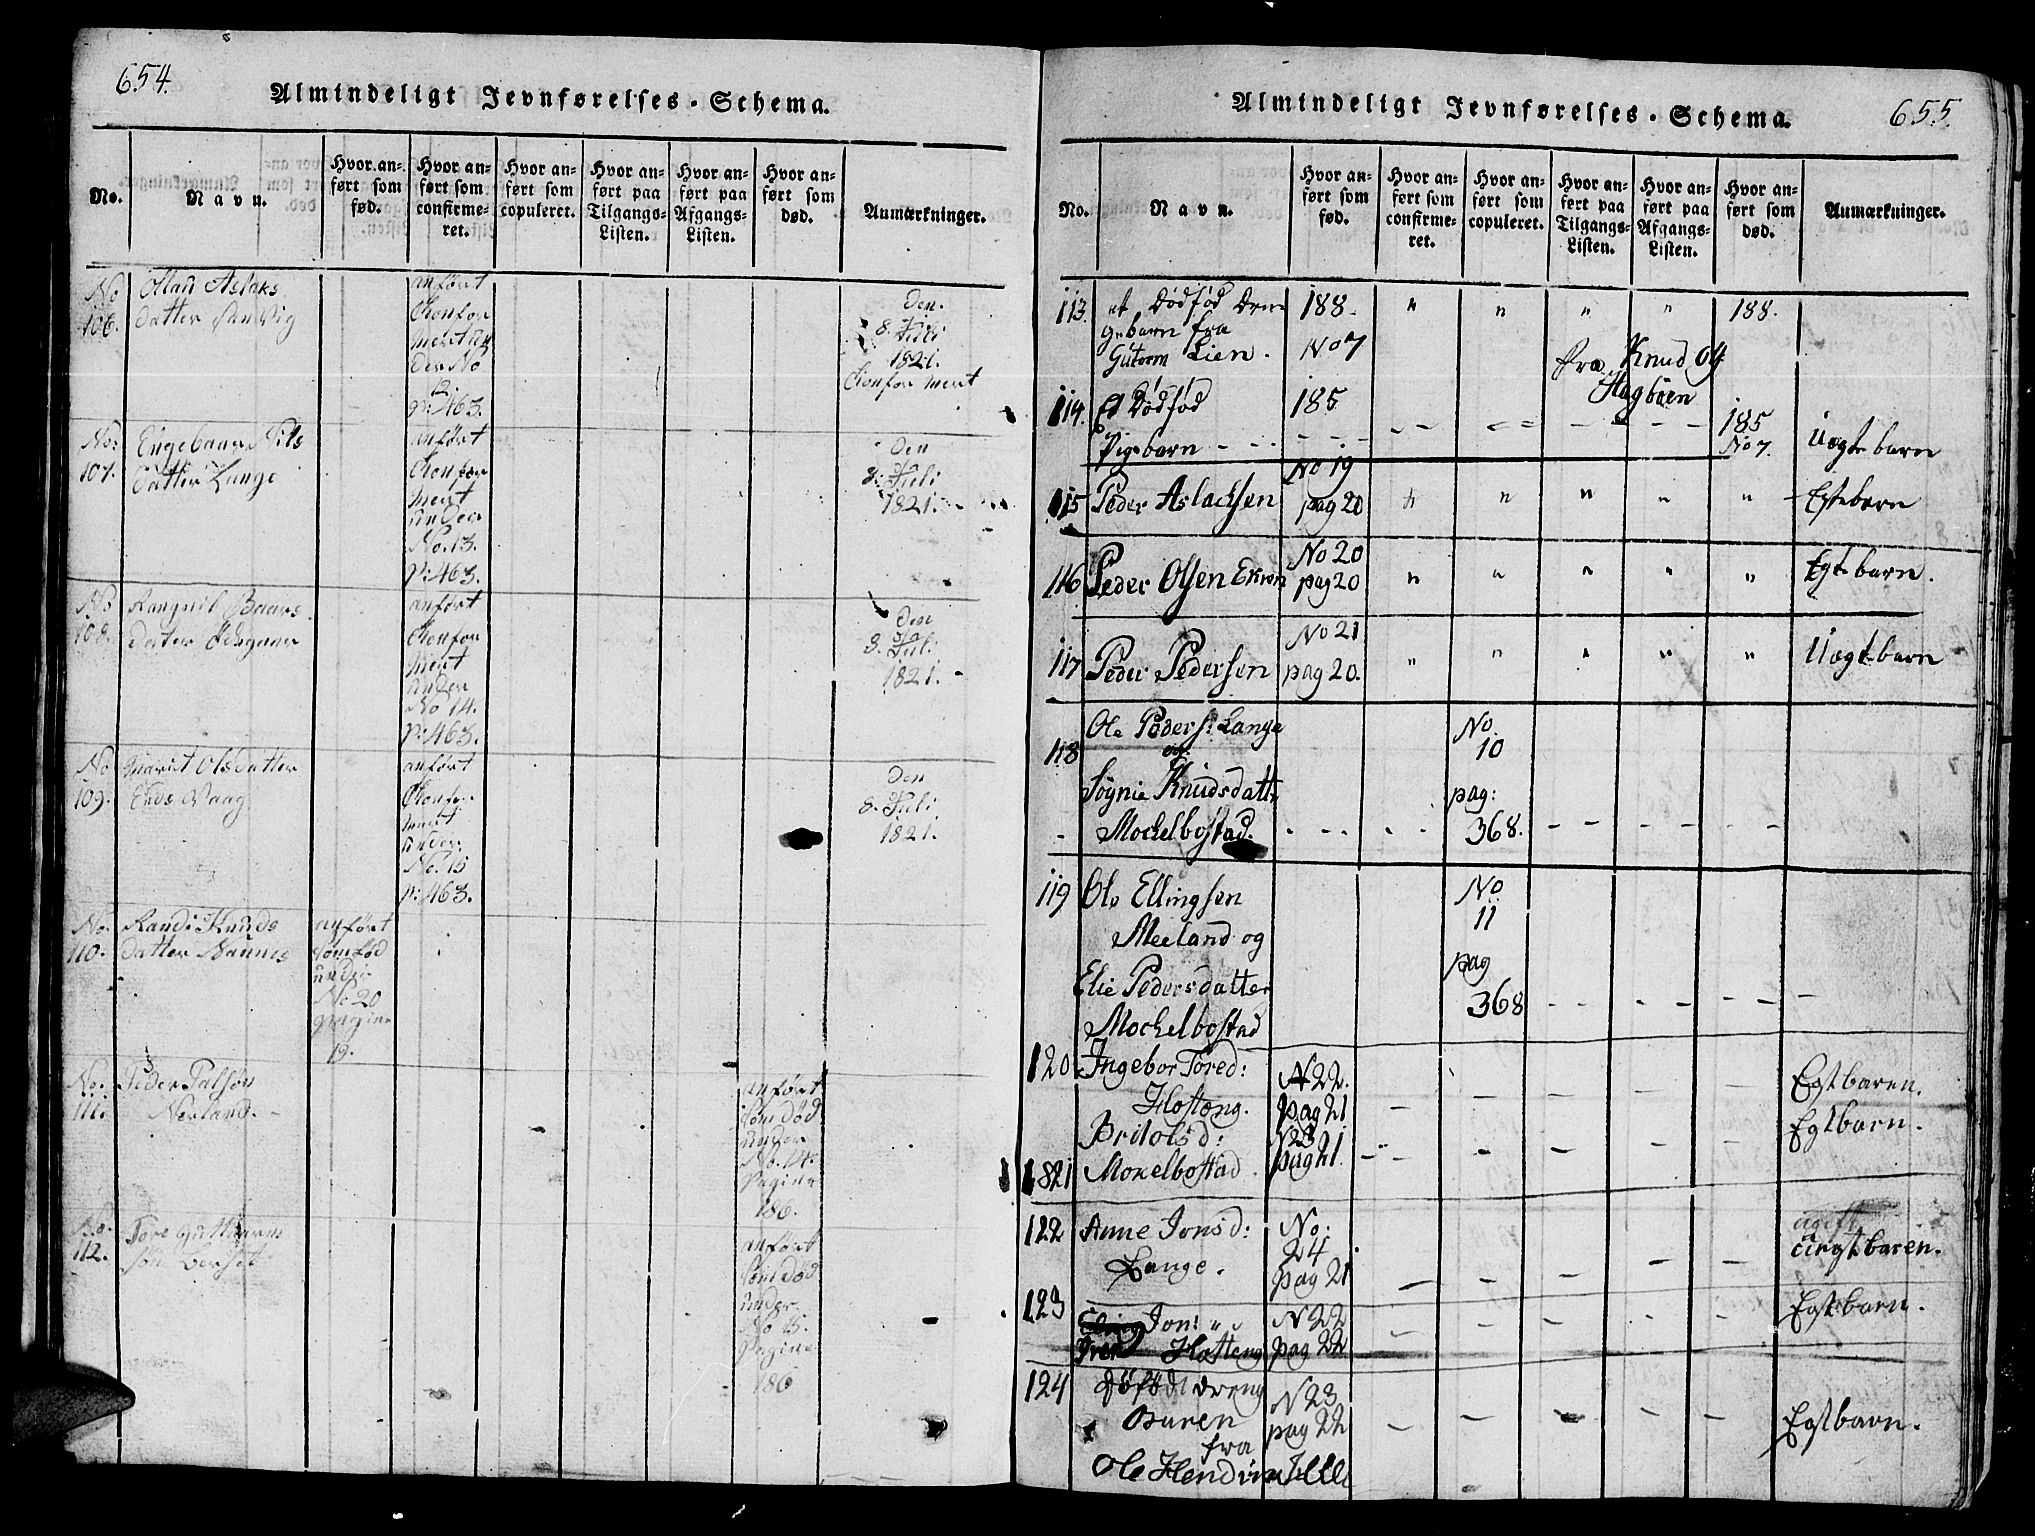 654.
Almindeligt Jevnførelses-Schema.
No.
Navn.
Hvor anført som fød.
Hvor anført som confirmeret.
Hvor anført som copuleret.
Hvor anført paa Tilgangs-Listen.
Hvor anført paa Afgangs-Listen.
Hvor anført som død.
Anmærkninger.
No 106.
Aslaks
datter
anført
Confor
ment
No
12.
p: 463.
Den
8. Juli
1821.
Confor ment
No: 107.
Engebaar Nils
datter Lange
anført
Confor
ment
under
No. 13.
p: 463.
den
8. Juli
1821.
No 108.
Rangnil Baars
datter
anført
Confor
ment
under
No 14.
p: 463.
Den
8. Juli
1821.
No 109.
Marit Olsdatter
Waag
anført
Confor
ment
under
No. 15
p: 463.
Den
8. Juli
1821.
No. 110.
Randi Knuds
datter Naunes
anført
som fød
under
No 20
pagina
19.
No. 111.
Peder Palsøn
Nerland.
anført
som død
under
No. 14.
Pagina
186.
No. 112.
Tore
søn
anført
som død
under
No 15.
Pagina
186
Almindeligt Jevnførelses-Schema.
655.
No.
Navn.
Hvor anført som fød.
Hvor anført som confirmeret.
Hvor anført som copuleret.
Hvor anført paa Tilgangs-Listen.
Hvor anført paa Afgangs-Listen.
Hvor anført som død.
Anmærkninger.
113.
et Dødfød Dren
gebarn fra
Gutorm Lien.
188.
No 7
" " " "
188.
fra Knud og
Hagbøen
114.
Et Dødfød
Pigebarn
185
185
No 7.
Uegte barn
115
Peder Aslachsen
No 19
pag 20
" " " " "
Egtebarn
116
Peder Olsen Ekren
No 20
pag 20
" " " " "
Egtebarn.
117
Peder Pedersen
No 21
pag 20.
" " " " "
Uegtebarn
118
Ole Peders: Lange
og
Søgnie Knudsdatt:
Mochelbostad.
No.
10
pag:
368.
119
Ole Ellingsen
Meeland og
Elie Pedersdatter
Mochelbostad
No
11
pag
368
120
Ingebor Tored:
Hosteng.
N 22.
pag 21
Egtbaren.
1821
Britolsd:
Moxelbostad
N 23
pag 21.
Egtbarn.
122
Anne Jonsd:
Lange.
No:
24
pag 21
uegtbaren.
123
Jons
Iver Hosteng
N 22
pag 22
Egtebarn.
124
Døfød dreng
Buren
fra
Ole Hendri
N 23
pag 22
Egtbarn.